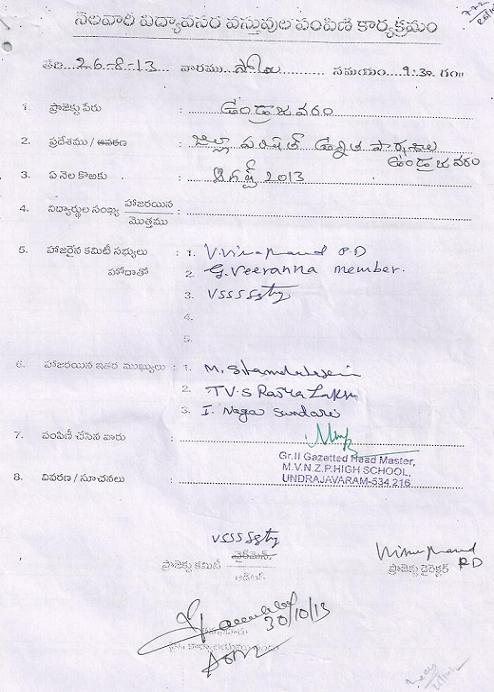 నెలవారీ విద్యావసర వస్తువుల పంపిణీ కార్యక్రమం
తేది...26-8-13 వారము సోమ సమయం 9:30 గం॥
1. ప్రాజెక్టు పేరు : ఉండ్రాజవరం
2. ప్రదేశము / ఆవరణ : జిల్లా పరిషత్ ఉన్నత పాఠశాల
ఉండ్రాజవరం
3. ఏ నెల కొఱకు : ఆగష్ట్ 2013
4. విద్యార్థుల సంఖ్య హాజరయిన
మొత్తము :
5. హాజరైన కమిటీ సభ్యులు : 1. P.D
హోదాతో 2. G. Veeranna member.
3. VSSSS
4.
5.
6. హాజరయిన ఇతర ముఖ్యులు : 1. M.
2. T.V.S
3. I. Naga Sundari
7. పంపిణీ చేసిన వారు :
Gr.II Gazetted Head Master,
M.V.N.Z.P.HIGH SCHOOL,
UNDRAJAVARAM-534 216
8. వివరణ / సూచనలు :
VSSSS
ప్రాజెక్టు కమిటీ ఛైర్మెన్
ప్రాజెక్టు డైరెక్టర్ P.D
30/10/13